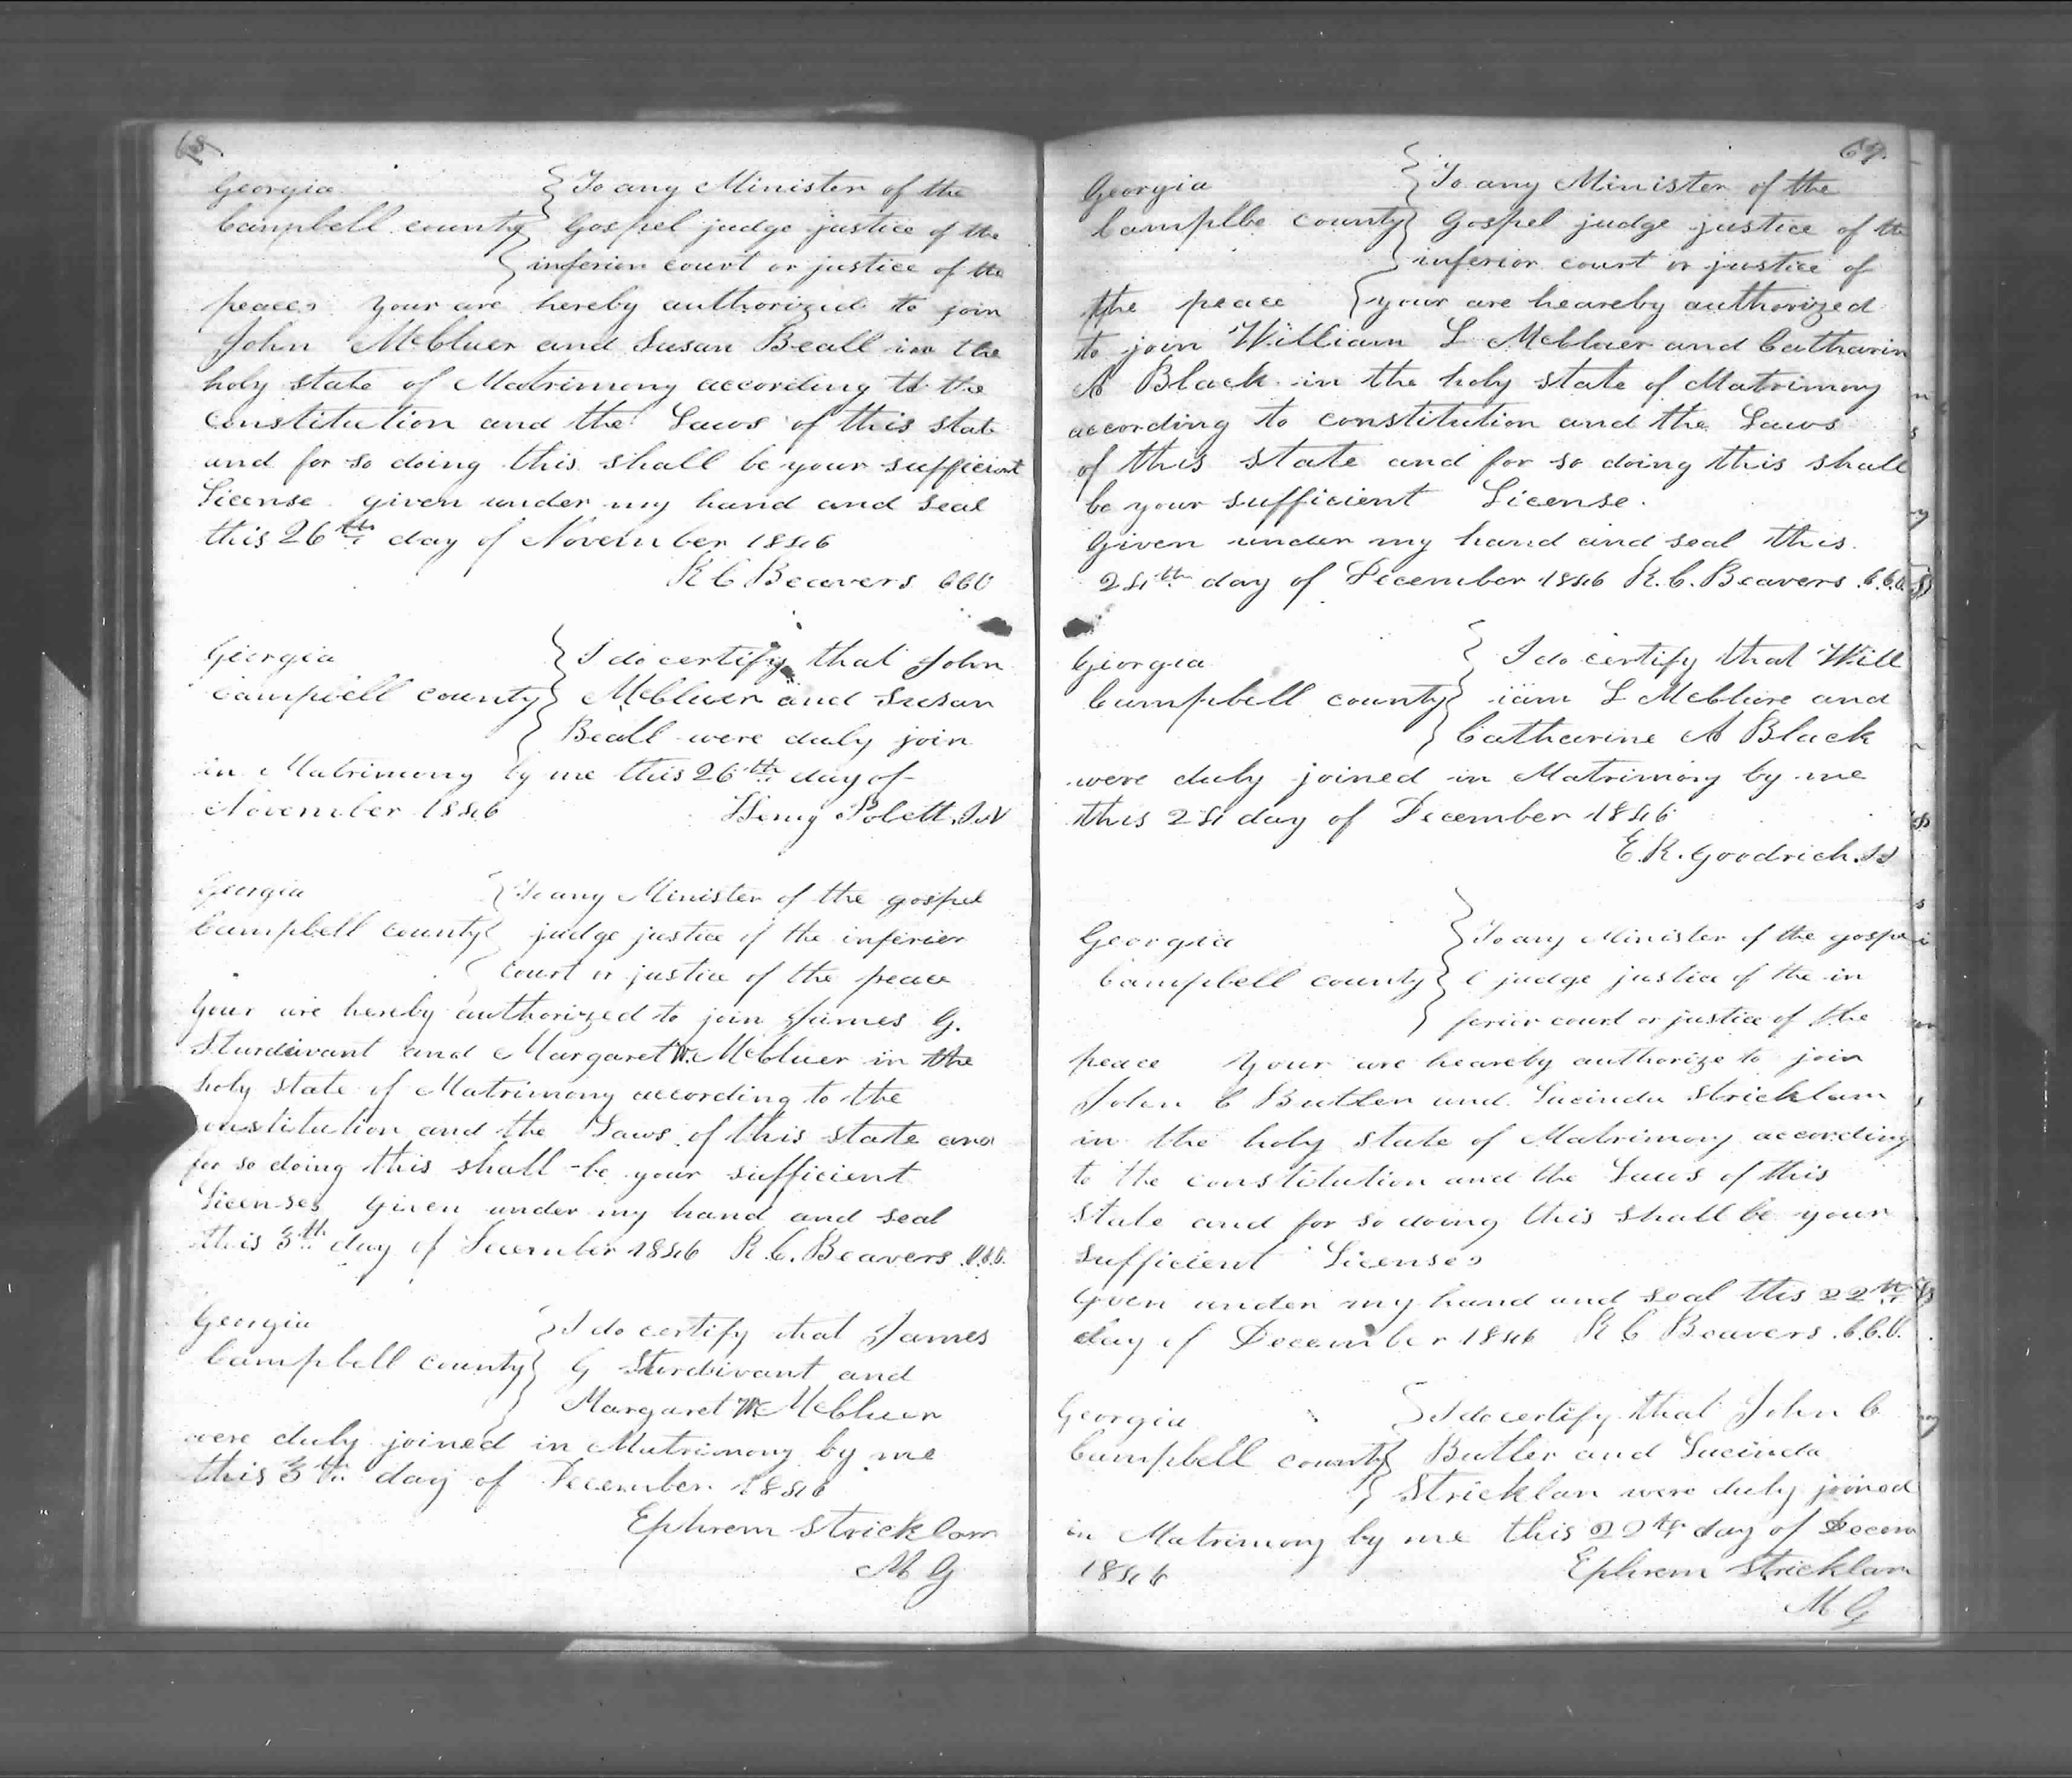 68
Georgia To any Minister of the
Campbell county Gospel judge justice of the
inferior court or justice of the
peace your are hereby authorized to join
John McCluer and Susan Beall in the
holy state of Matrimony according to the
constitution and the Laws of this state
and for so doing this shall be your sufficient
License given under my hand and seal
this 26th day of November 1846
R C Beavers CCO
Georgia I do certify that John
Campbell county McCluer and Susan
Beall were duly join
in Matrimony by me this 26th day of
November 1846
Georgia To any Minister of the gospel
Campbell county judge justice of the inferier
court or justice of the peace
your are hereby authorized to join James G.
Sturdivant and Margaret McCluer in the
holy state of Matrimony according to the
constitution and the Laws of this state and
for so doing this shall be your sufficient
Licenses given under my hand and seal
this 3th day of December 1846 R. C. Beavers C.C.O.
Georgia I do certify that James
Campbell county G Sturdivant and
Margaret McCluer
were duly joined in Matrimony by me
this 3th day of December 1846
Ephrem Stricklan
M G
69.
Georgia To any Minister of the
Camplbe county Gospel judge justice of the
inferior court or justice of
the peace your are heareby authorized
to join William L McCluer and Catharin
A Black in the holy state of Matrimony
according to constitution and the Laws
of this state and for so doing this shall
be your sufficient License.
Given under my hand and seal this
24th day of December 1846 R. C. Beavers C.C.O.
Georgia I do certify that Will
Campbell county iam L McClure and
Catharine A Black
were duly joined in Matrimony by me
this 24 day of December 1846
E. R. Goodrich
Georgia To any Minister of the gospe
Campbell county l judge justice of the in
ferier court or justice of the
peace your are heareby authorize to join
John C Butler and Lucinda Stricklan
in the holy state of Matrimony according
to the constitution and the Laws of this
state and for so doing this shall be your
sufficient Licenses
Given under my hand and seal this 22th
day of December 1846 R C Beavers C.C.O.
Georgia I do certify that John C
Campbell county Butler and Lucinda
Stricklan were duly joined
in Matrimony by me this 22th day of Decem
1846 Ephrem Stricklan
M G